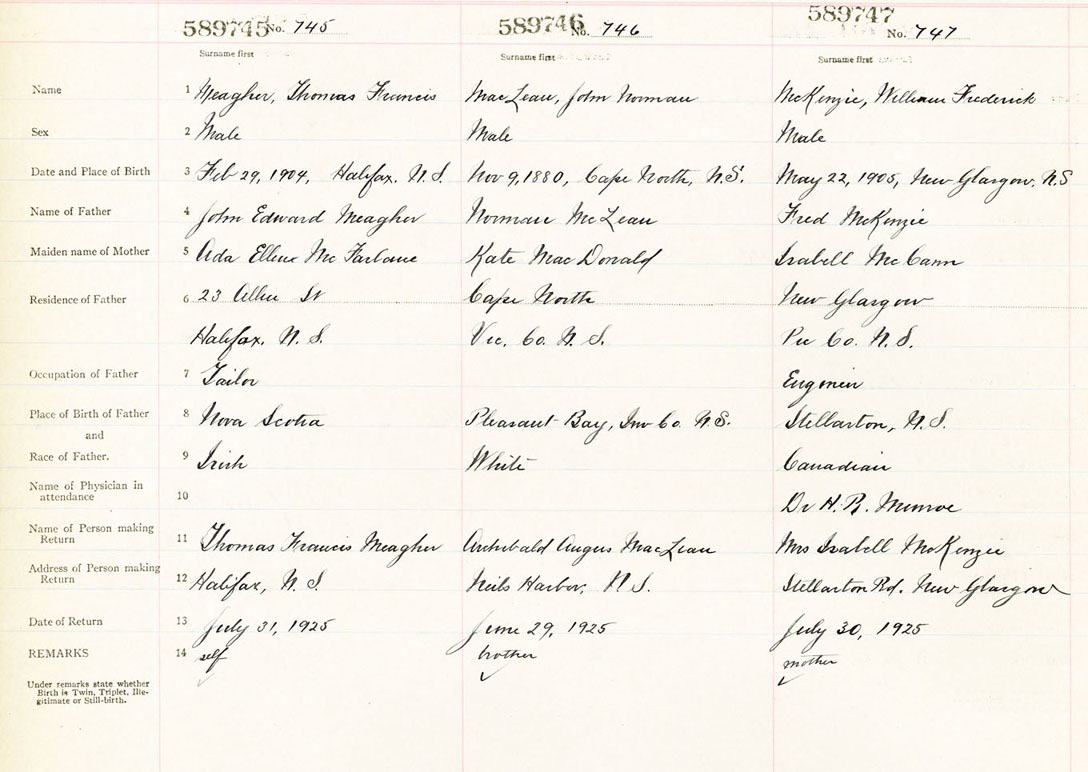 589745 No. 745 589746 No. 746 589747 No. 747
Surname first Surname first Surname first
Name 1 Meagher, Thomas Francis MacLean, John Norman McKenzie, William Frederick
Sex 2 Male Male Male
Date and Place of Birth 3 Feb 29, 1904, Halifax. N.S. Nov 9, 1880, Cape North, N.S. May 22, 1905, New Glasgow, N.S
Name of Father 4 John Edward Meagher Norman McLean Fred McKenzie
Maiden name of Mother 5 Ada Ellen McFarlane Kate MacDonald Isabell McCann
Residence of Father 6 23 Allen St Cape North New Glasgow
Halifax. N. S. Vic. Co. N. S. Pic Co. N. S.
Occupation of Father 7 Tailor Engineer
Place of Birth of Father 8 Nova Scotia Pleasant Bay, Inv Co. N.S. Stellarton, N.S.
and
Race of Father. 9 Irish White Canadian
Name of Physician in
attendance 10 Dr H. R. Munroe
Name of Person making
Return 11 Thomas Francis Meagher Archibald Angus MacLean Mrs Isabell McKenzie
Address of Person making
Return 12 Halifax, N. S. Neils Harbor, N S. Stellarton Rd. New Glasgow
Date of Return 13 July 31, 1925 June 29, 1925 July 30, 1925
REMARKS 14 self brother mother
Under remarks state whether
Birth is Twin, Triplet, Ille-
gitimate or Still-birth.